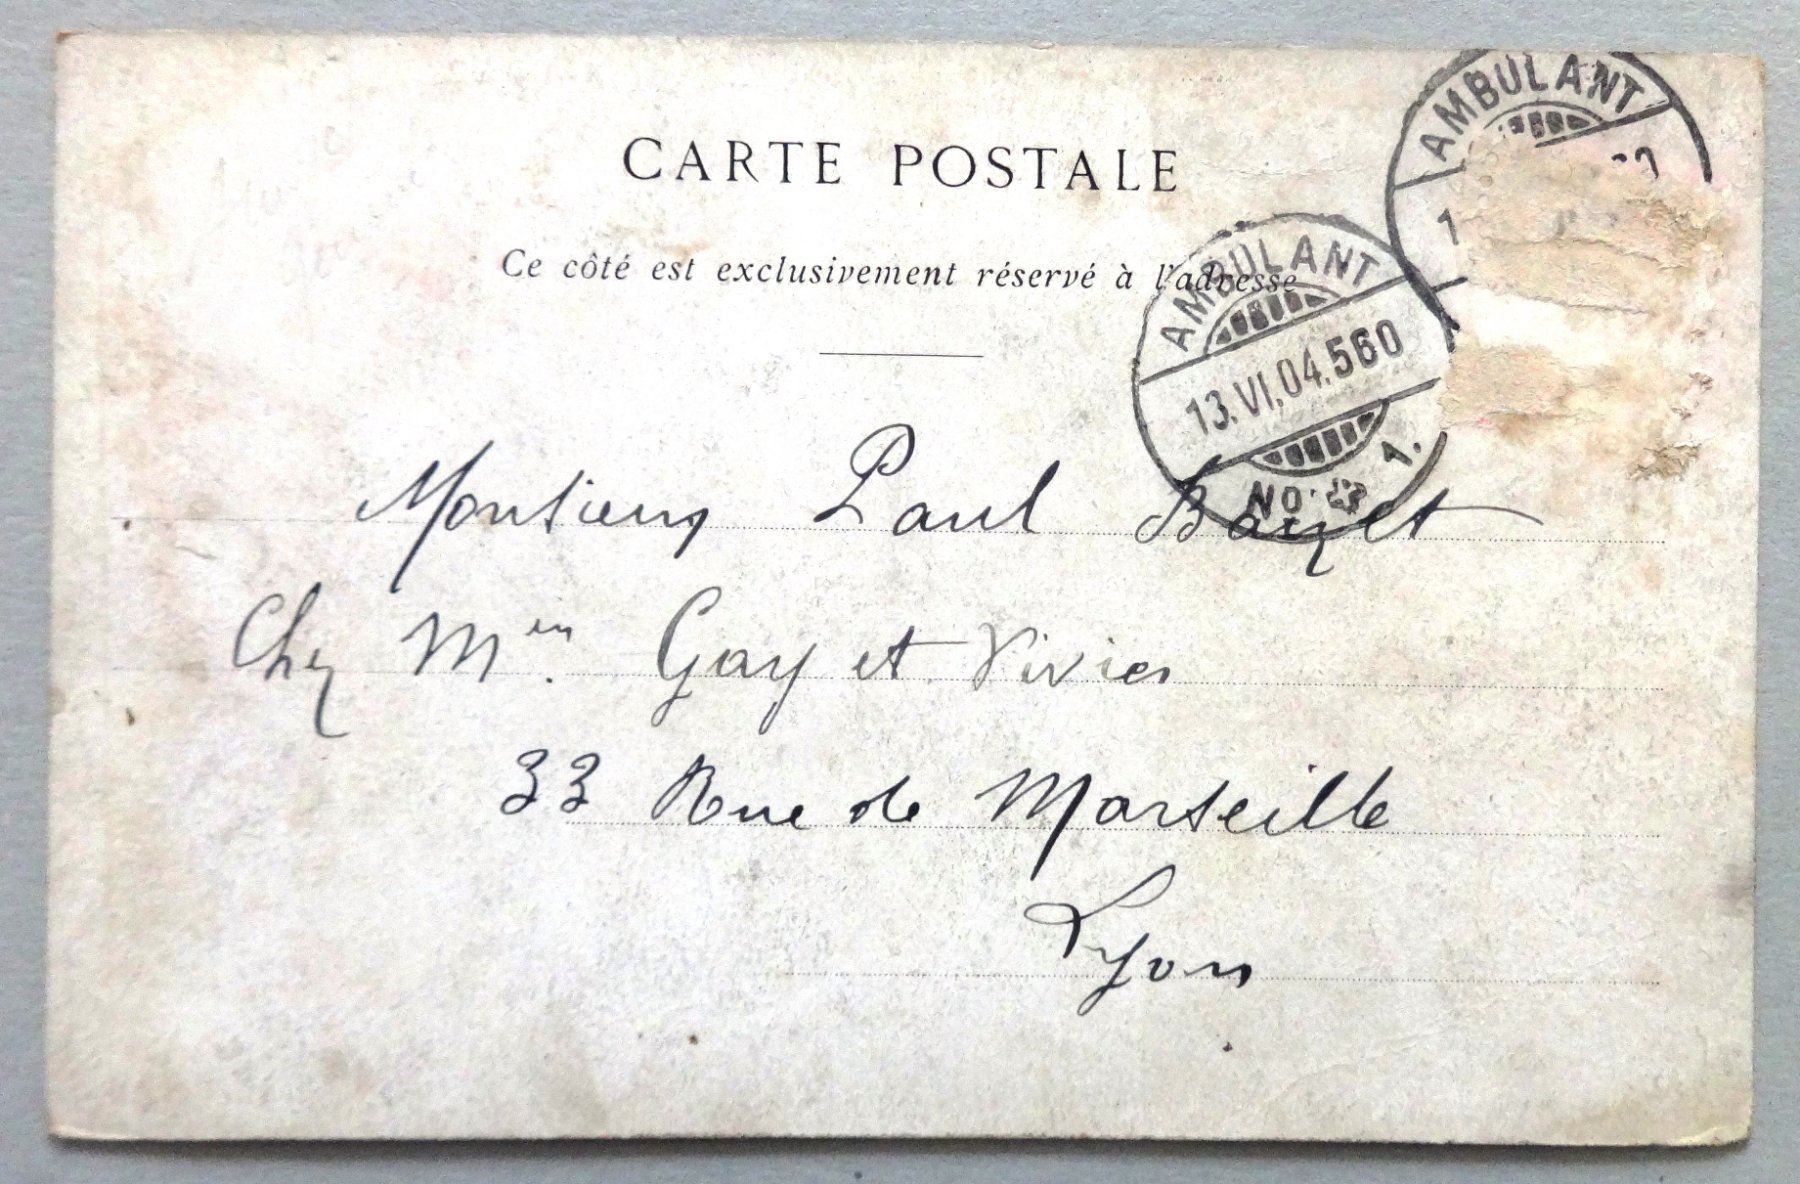 CARTE POSTALE
Ce côté est exclusivement réservé à l'adresse
AMBULANT
1
AMBULANT
13.VI.04.560
NO 1.
Monsieur Paul Bazet
Chez Mrs. Gay et Vivier
33 Rue de Marseille
Lyon